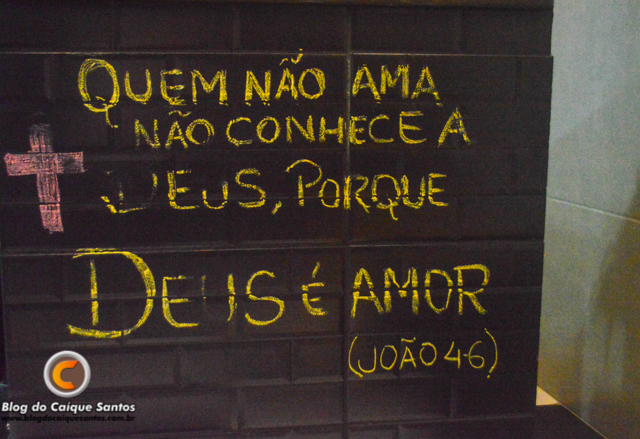 QUEM NÃO AMA
NÃO CONHECE A
DEUS, PORQUE
DEUS É AMOR
(JOÃO 4-6)
Blog do Caique Santos
www.blogdocaiquesantos.com.br